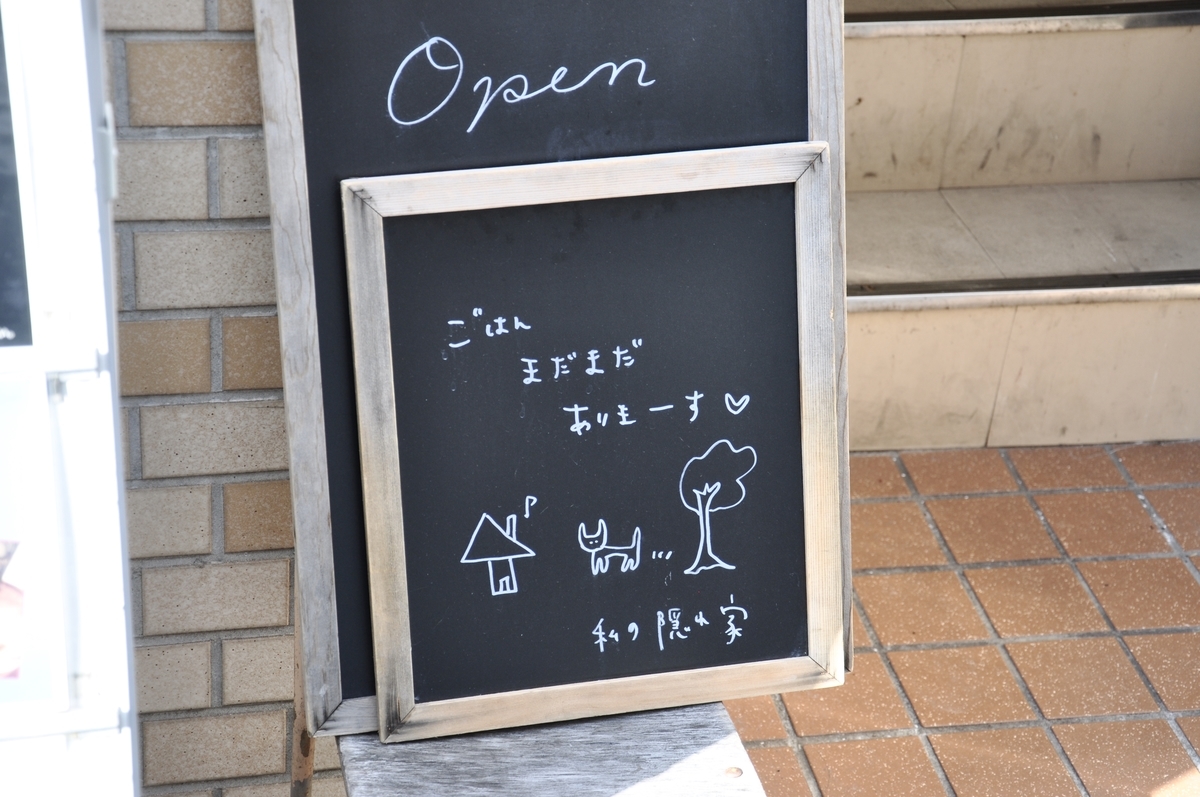 Open
ごはん
まだまだ
ありまーす♡
私の隠れ家